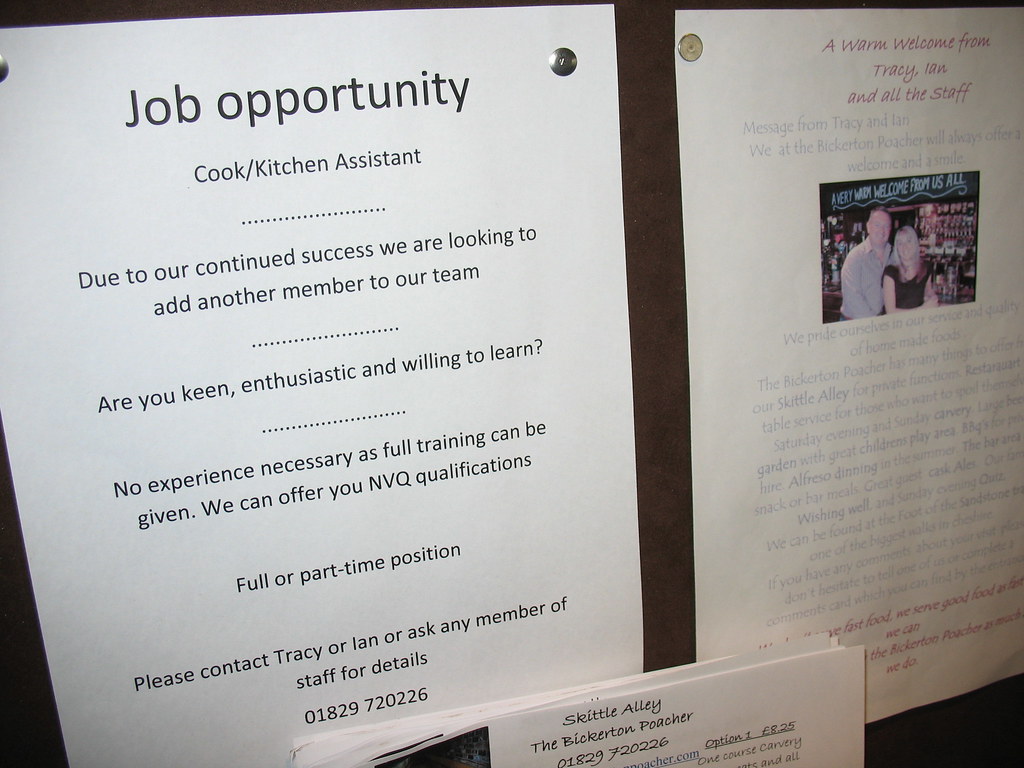 Job opportunity
Cook/Kitchen Assistant
........................
Due to our continued success we are looking to
add another member to our team
........................
Are you keen, enthusiastic and willing to learn?
........................
No experience necessary as full training can be
given. We can offer you NVQ qualifications
Full or part-time position
Please contact Tracy or Ian or ask any member of
staff for details
01829 720226
A Warm Welcome from
Tracy, Ian
and all the Staff
Message from Tracy and Ian
We at the Bickerton Poacher will always offer a
welcome and a smile.
A VERY WARM WELCOME FROM US ALL
We pride ourselves in our service and quality
of home made foods.
The Bickerton Poacher has many things to offer
our Skittle Alley for private functions. Restaurant
table service for those who want to spoil
Saturday evening and Sunday carvery. Large beer
garden with great childrens play area. BBq's for
hire. Alfreso dinning in the summer. The bar area
snack or bar meals. Great guest cask Ales. Our
Wishing well, and Sunday evening Quiz.
We can be found at the Foot of the Sandstone
one of the biggest walks in cheshire
If you have any comments about your visit
don't hesitate to tell one of us or complete a
comments card which you can find by the
fast food, we serve good food as
we can
the Bickerton Poacher as much
we do.
Skittle Alley
The Bickerton Poacher
01829 720226
poacher.com
Option 1 £8.25
One course Carvery
and all